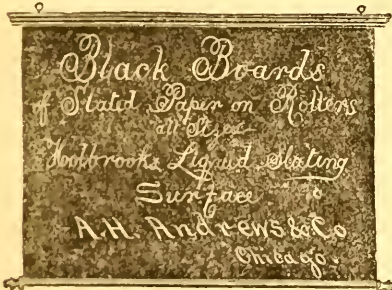 Black Boards
of Slated Paper on Rollers
all Sizes
Holbrooks Liquid Slating
Surface
A.H. Andrews & Co
Chicago.